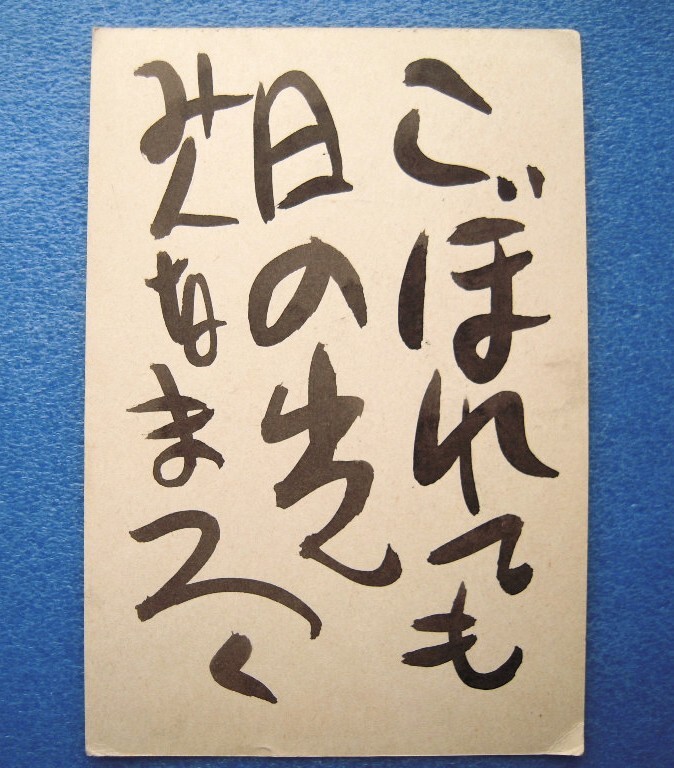 こぼれても
日の光
みんなまるく